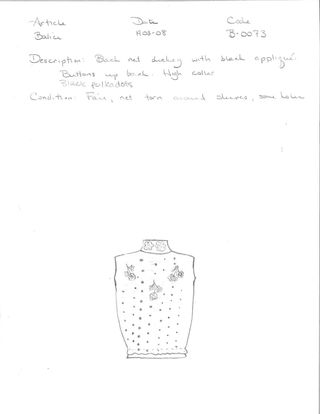 Article Date Code
Bodice 1905-08 B-0073
Description: Black net dickey with black appliqué.
Buttons up back. High collar
Black polkadots
Condition: Fair, net torn around sleeves, some holes